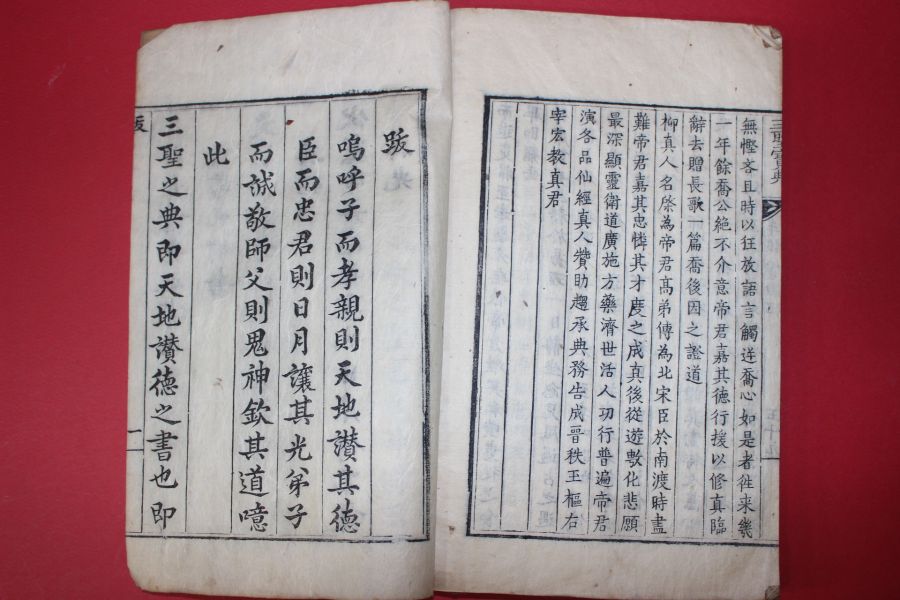 無慳吝且時以狂放語言觸逆喬心如是者徃來幾
一年餘喬公絶不介意帝君嘉其德行援以修真臨
辭去贈長歌一篇喬後因之證道
柳真人名榮為帝君高弟傳為北宋臣於南渡時盡
難帝君嘉其忠憐其才度之成真後從遊敷化悲願
最深顯靈衛道廣施方藥濟世活人功行普遍帝君
演各品仙經真人贊助趨承典務告成晉秩玉樞右
宰宏教真君
跋
嗚呼子而孝親則天地讚其德
臣而忠君則日月讓其光弟子
而誠敬師父則鬼神欽其道噫
此
三聖之典即天地讚德之書也即
跋
一